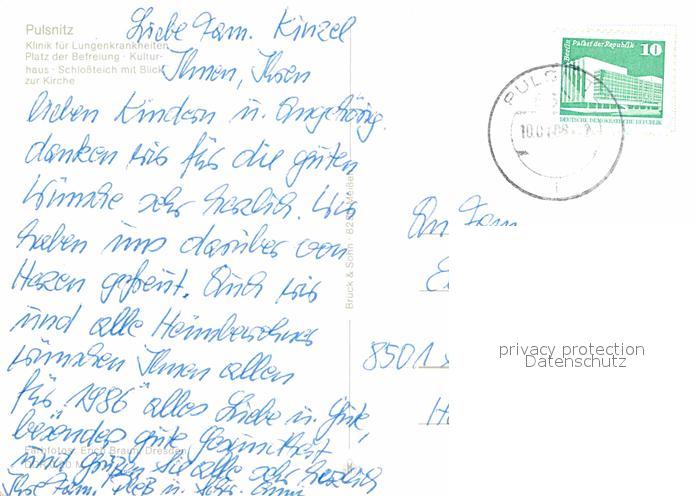 Pulsnitz
Klinik für Lungenkrankheiten
Platz der Befreiung · Kultur-
haus · Schloßteich mit Blick
zur Kirche
Liebe Fam. Kinzel
Ihnen, Ihren
lieben Kindern u. Angehörig.
danken wir für die guten
Wünsche sehr herzlich. Wir
haben uns darüber von
Herzen gefreut. Auch wir
und alle Heimbewohner
wünschen Ihnen allen
für "1986" alles Liebe u. Gute,
besonders gute Gesundheit
und grüßen Sie alle sehr herzlich
Ihre Fam. u.
Farbfotos: Erich Braun, Dresden
Bruck & Sohn · 825 Meißen
Berlin Palast der Republik 10
DEUTSCHE DEMOKRATISCHE REPUBLIK
PULS
An Fam
8501
privacy protection
Datenschutz